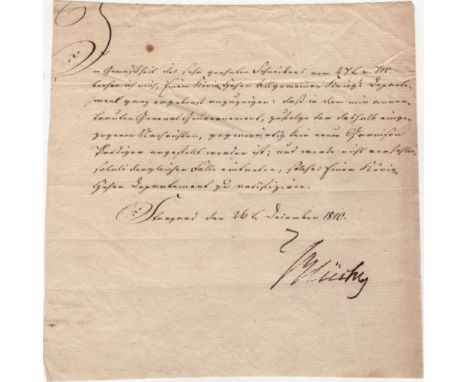 In Gemäßheit des sehr geehrten Schreibens vom 27t. v. Mt.
beehre ich mich, Einem Königl. Hohen Allgemeinen Kriegs Departe-
ment ganz ergebenst anzuzeigen: daß in dem mir anver-
trauten General Gouvernement, zufolge der deshalb einge-
zogenen Nachrichten, gegenwärtig kein neuer Garnison
Prediger angestellt worden ist; und werde nicht verfehlen,
sobald dergleichen Fälle eintreten, solches Einem Königl.
Hohen Departement zu notifiziren.
Stargard den 26t. December 1810.
Blücher